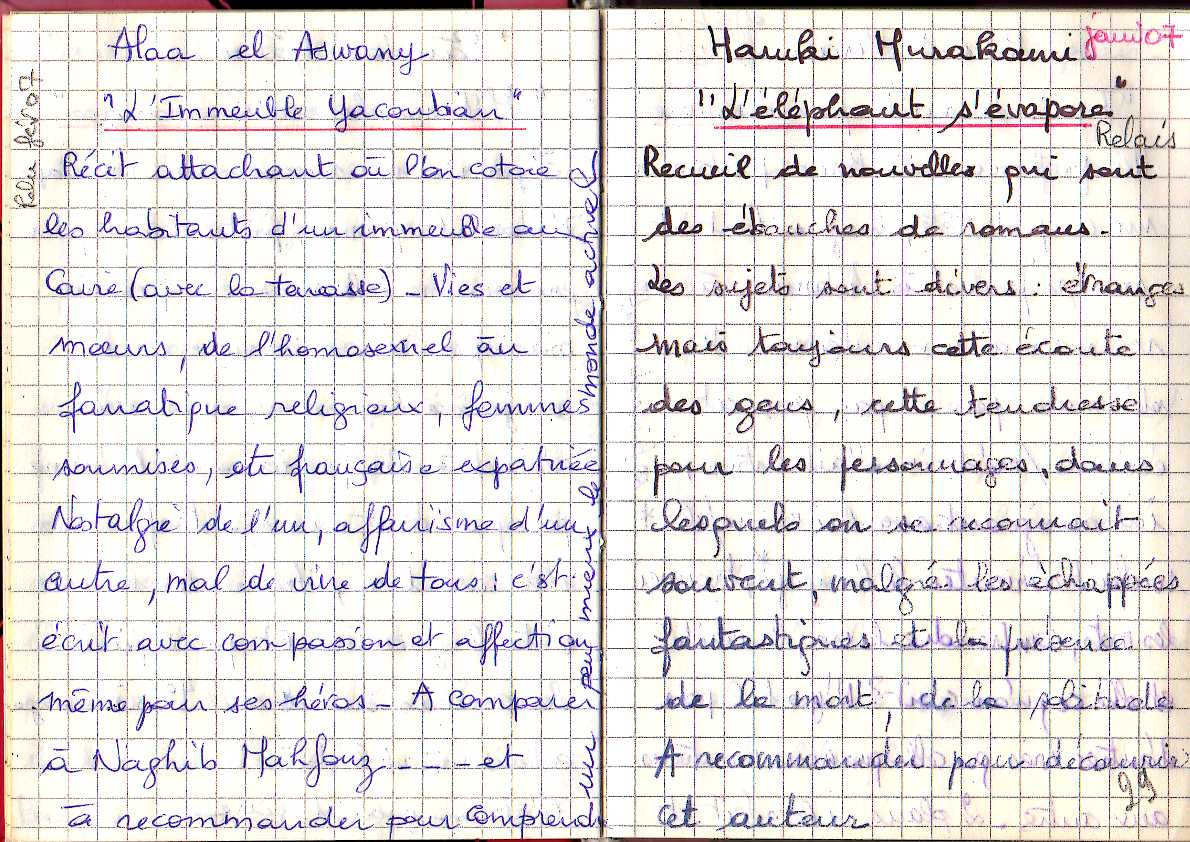 Alaa el Aswany
"L'Immeuble Yacoubian"
Relu fév 07
Récit attachant où l'on cotoie
les habitants d'un immeuble au
Caire (avec la terrasse) - Vies et
mœurs, de l'homosexuel au
fanatique religieux, femmes
soumises, et française expatriée
Nostalgie de l'un, affairisme d'un
autre, mal de vivre de tous : c'est
écrit avec compassion et affection
même pour ses héros - A comparer
à Naghib Mahfouz - - - - et
à recommander pour comprend
un peu mieux le monde actuel
Haruki Murakami
janv 07
"L'éléphant s'évapore"
Relais
Recueil de nouvelles qui sont
des ébauches de romans -
Les sujets sont divers : étranges
mais toujours cette écoute
des gens, cette tendresse
pour les personnages, dans
lesquels on se reconnait
souvent, malgré les échappées
fantastiques et la présence
de la mort, de la solitude
A recommander pour découvrir
cet auteur
99